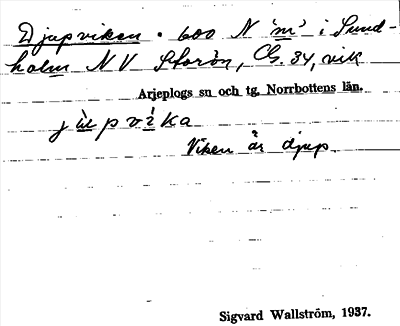 Djupviken. 600 N "m" i Sund-
holm NV Storön, Cb. 34, vik
Arjeplogs sn och tg. Norrbottens län.
jùpvìka
Viken är djup
Sigvard Wallström, 1937.